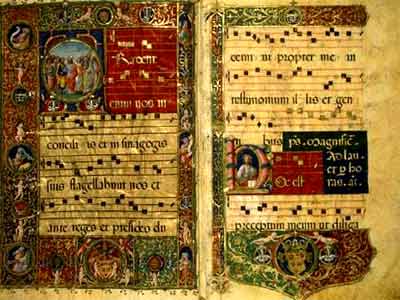 Tradent
enim uos in
concili is et in sinagogis
suis flagellabunt uos et
ante reges et presides du
cemini propter me in
testimonium il lis et gen
tibus ps. Magnific.
Ad lau.
Hoc est
preceptum meum ut diliga